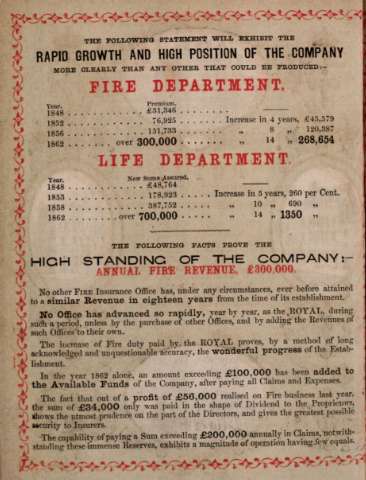 THE FOLLOWING STATEMENT WILL EXHIBIT THE
RAPID GROWTH AND HIGH POSITION OF THE COMPANY
MORE CLEARLY THAN ANY OTHER THAT COULD BE PRODUCED:—
FIRE DEPARTMENT.
Year. Premium.
1848 . . . . . . . . . . £31,346 . . . . . .
1852 . . . . . . . . . . 76,925 . . . . . . Increase in 4 years, £45,579
1856 . . . . . . . . . . 151,733 . . . . . . „ 8 „ 120,387
1862 . . . . . . . over 300,000 . . . . . . „ 14 „ 268,654
LIFE DEPARTMENT.
Year. New Sums Assured.
1848 . . . . . . . . . . £48,764 . . . . . .
1853 . . . . . . . . . . 178,923 . . . . . . Increase in 5 years, 260 per Cent.
1858 . . . . . . . . . . 387,752 . . . . . . „ 10 „ 690 „
1862 . . . . . . . over 700,000 . . . . . . „ 14 „ 1350 „
THE FOLLOWING FACTS PROVE THE
HIGH STANDING OF THE COMPANY:—
ANNUAL FIRE REVENUE, £300,000.
No other FIRE Insurance Office has, under any circumstances, ever before attained
to a similar Revenue in eighteen years from the time of its establishment.
No Office has advanced so rapidly, year by year, as the ROYAL, during
such a period, unless by the purchase of other Offices, and by adding the Revenues of
such Offices to their own.
The increase of Fire duty paid by the ROYAL proves, by a method of long
acknowledged and unquestionable accuracy, the wonderful progress of the Estab-
lishment.
In the year 1862 alone, an amount exceeding £100,000 has been added to
the Available Funds of the Company, after paying all Claims and Expenses.
The fact that out of a profit of £56,000 realised on Fire business last year,
the sum of £34,000 only was paid in the shape of Dividend to the Proprietors,
shows the utmost prudence on the part of the Directors, and gives the greatest possible
security to Insurers.
The capability of paying a Sum exceeding £200,000 annually in Claims, notwith-
standing these immense Reserves, exhibits a magnitude of operation having few equals.